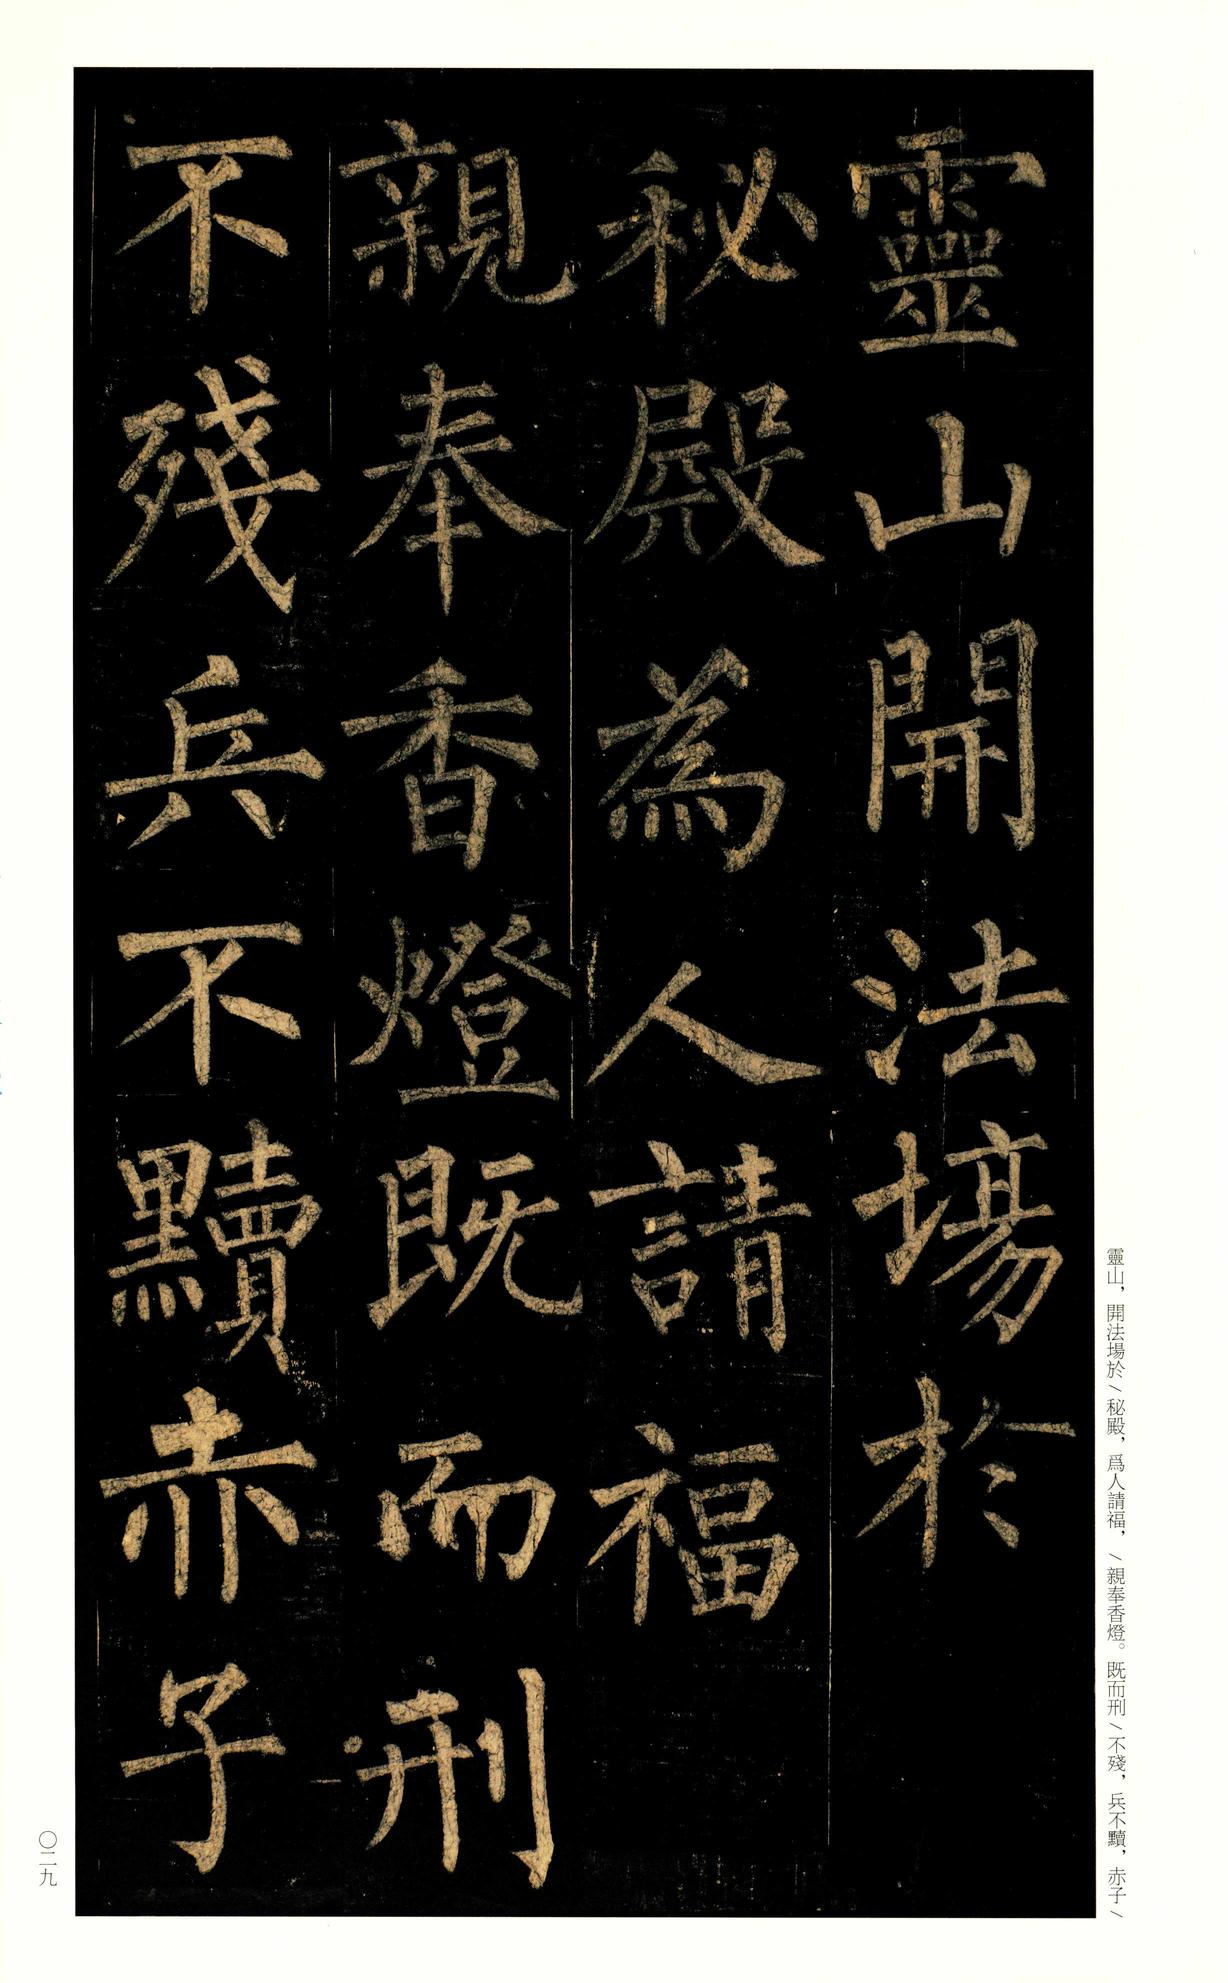 靈山開法場於
秘殿為人請福
親奉香燈既而刑
不殘兵不黷赤子
靈山，開法場於/秘殿，爲人請福，/親奉香燈。既而刑/不殘，兵不黷，赤子/
〇二九